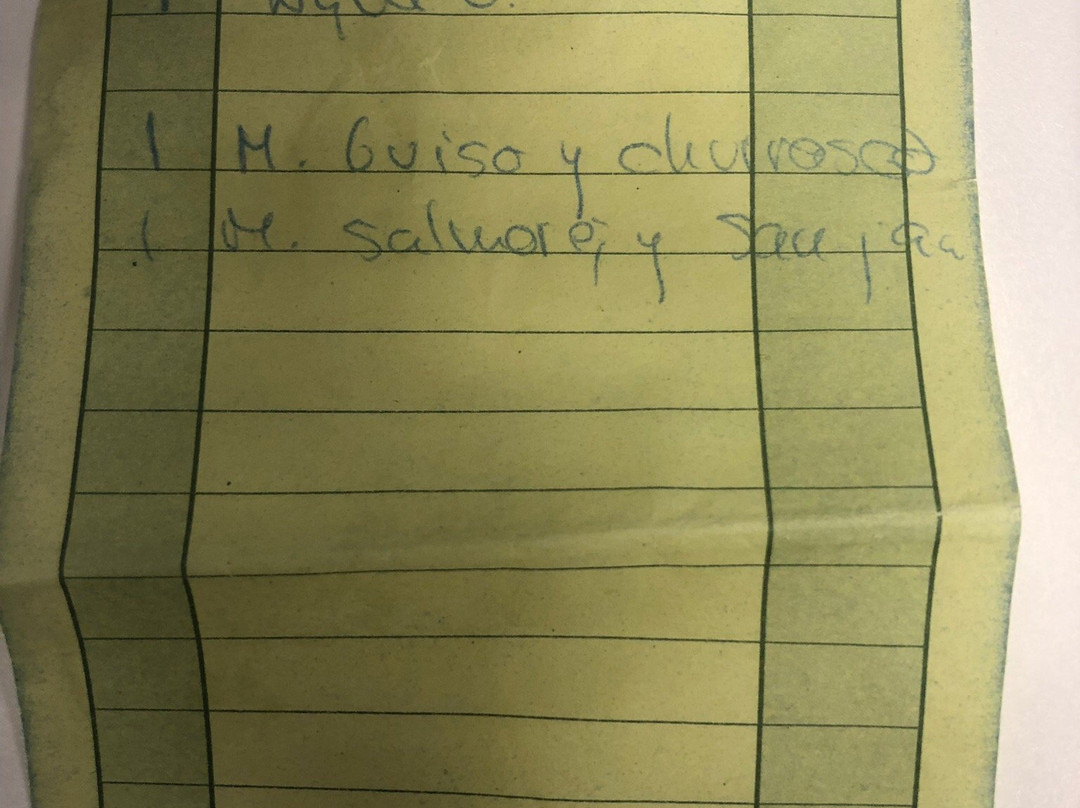 1 M. Guiso y churrosco
1 M. Salmorej y San jaa